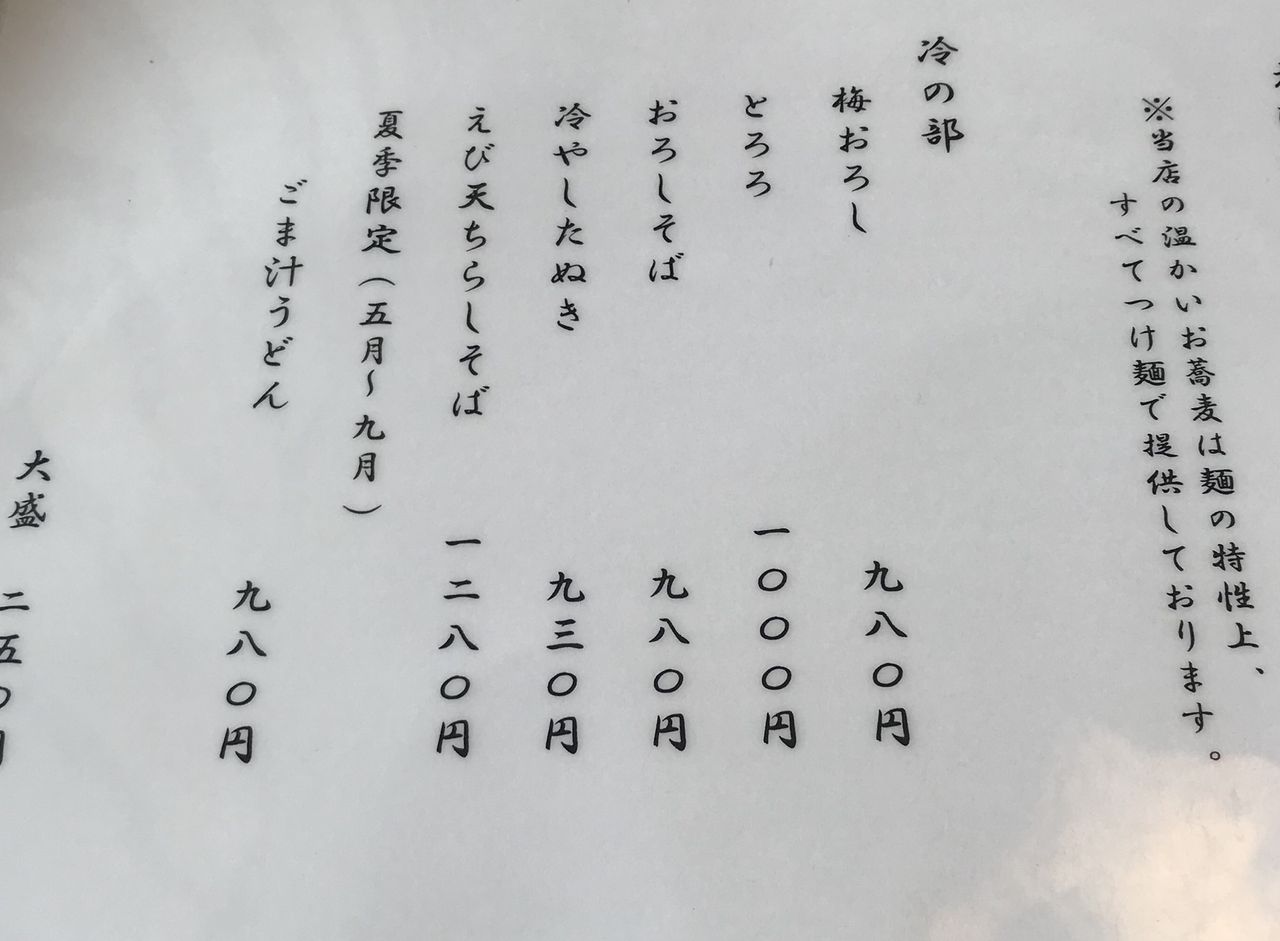 ※当店の温かいお蕎麦は麺の特性上、
すべてつけ麺で提供しております。
冷の部
梅おろし 九八〇円
とろろ 一〇〇〇円
おろしそば 九八〇円
冷やしたぬき 九三〇円
えび天ちらしそば 一二八〇円
夏季限定(五月〜九月)
ごま汁うどん 九八〇円
大盛 二五〇円